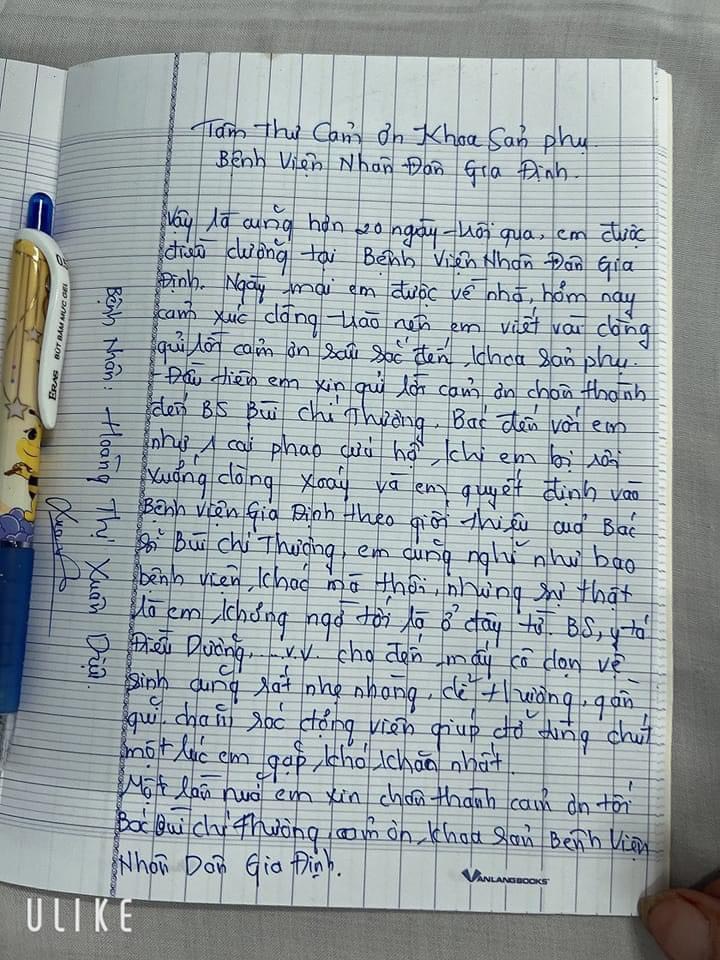 Tâm thư Cảm ơn Khoa Sản phụ
Bệnh Viện Nhân Dân Gia Định.
Vậy là cũng hơn 20 ngày trôi qua, em được
điều dưỡng tại Bệnh Viện Nhân Dân Gia
Định. Ngày mai em được về nhà, hôm nay
cảm xúc dâng trào nên em viết vài dòng
gửi lời cảm ơn sâu sắc đến khoa sản phụ.
- Đầu tiên em xin gửi lời cảm ơn chân thành
đến BS Bùi Chí Thương. Bác đến với em
như 1 cái phao cứu hộ, khi em bị rơi
xuống dòng xoáy và em quyết định vào
Bệnh viện Gia Định theo giới thiệu của Bác
Sĩ Bùi Chí Thương, em cũng nghĩ như bao
bệnh viện khác mà thôi, nhưng sự thật
là em không ngờ tới là ở đây từ BS, y tá
Điều Dưỡng,...v.v. cho đến mấy cô dọn vệ
sinh cũng rất nhẹ nhàng, dễ thương, gần
gũi, chăm sóc động viên giúp đỡ từng chút
một lúc em gặp khó khăn nhất.
Một lần nữa em xin chân thành cảm ơn tới
Bác Bùi Chí Thương, cảm ơn khoa sản Bệnh Viện
Nhân Dân Gia Định.
Bệnh Nhân: Hoàng Thị Xuân Diệu.
VANLANGBOOKS
BÚT BẤM MỰC GEL
ULIKE